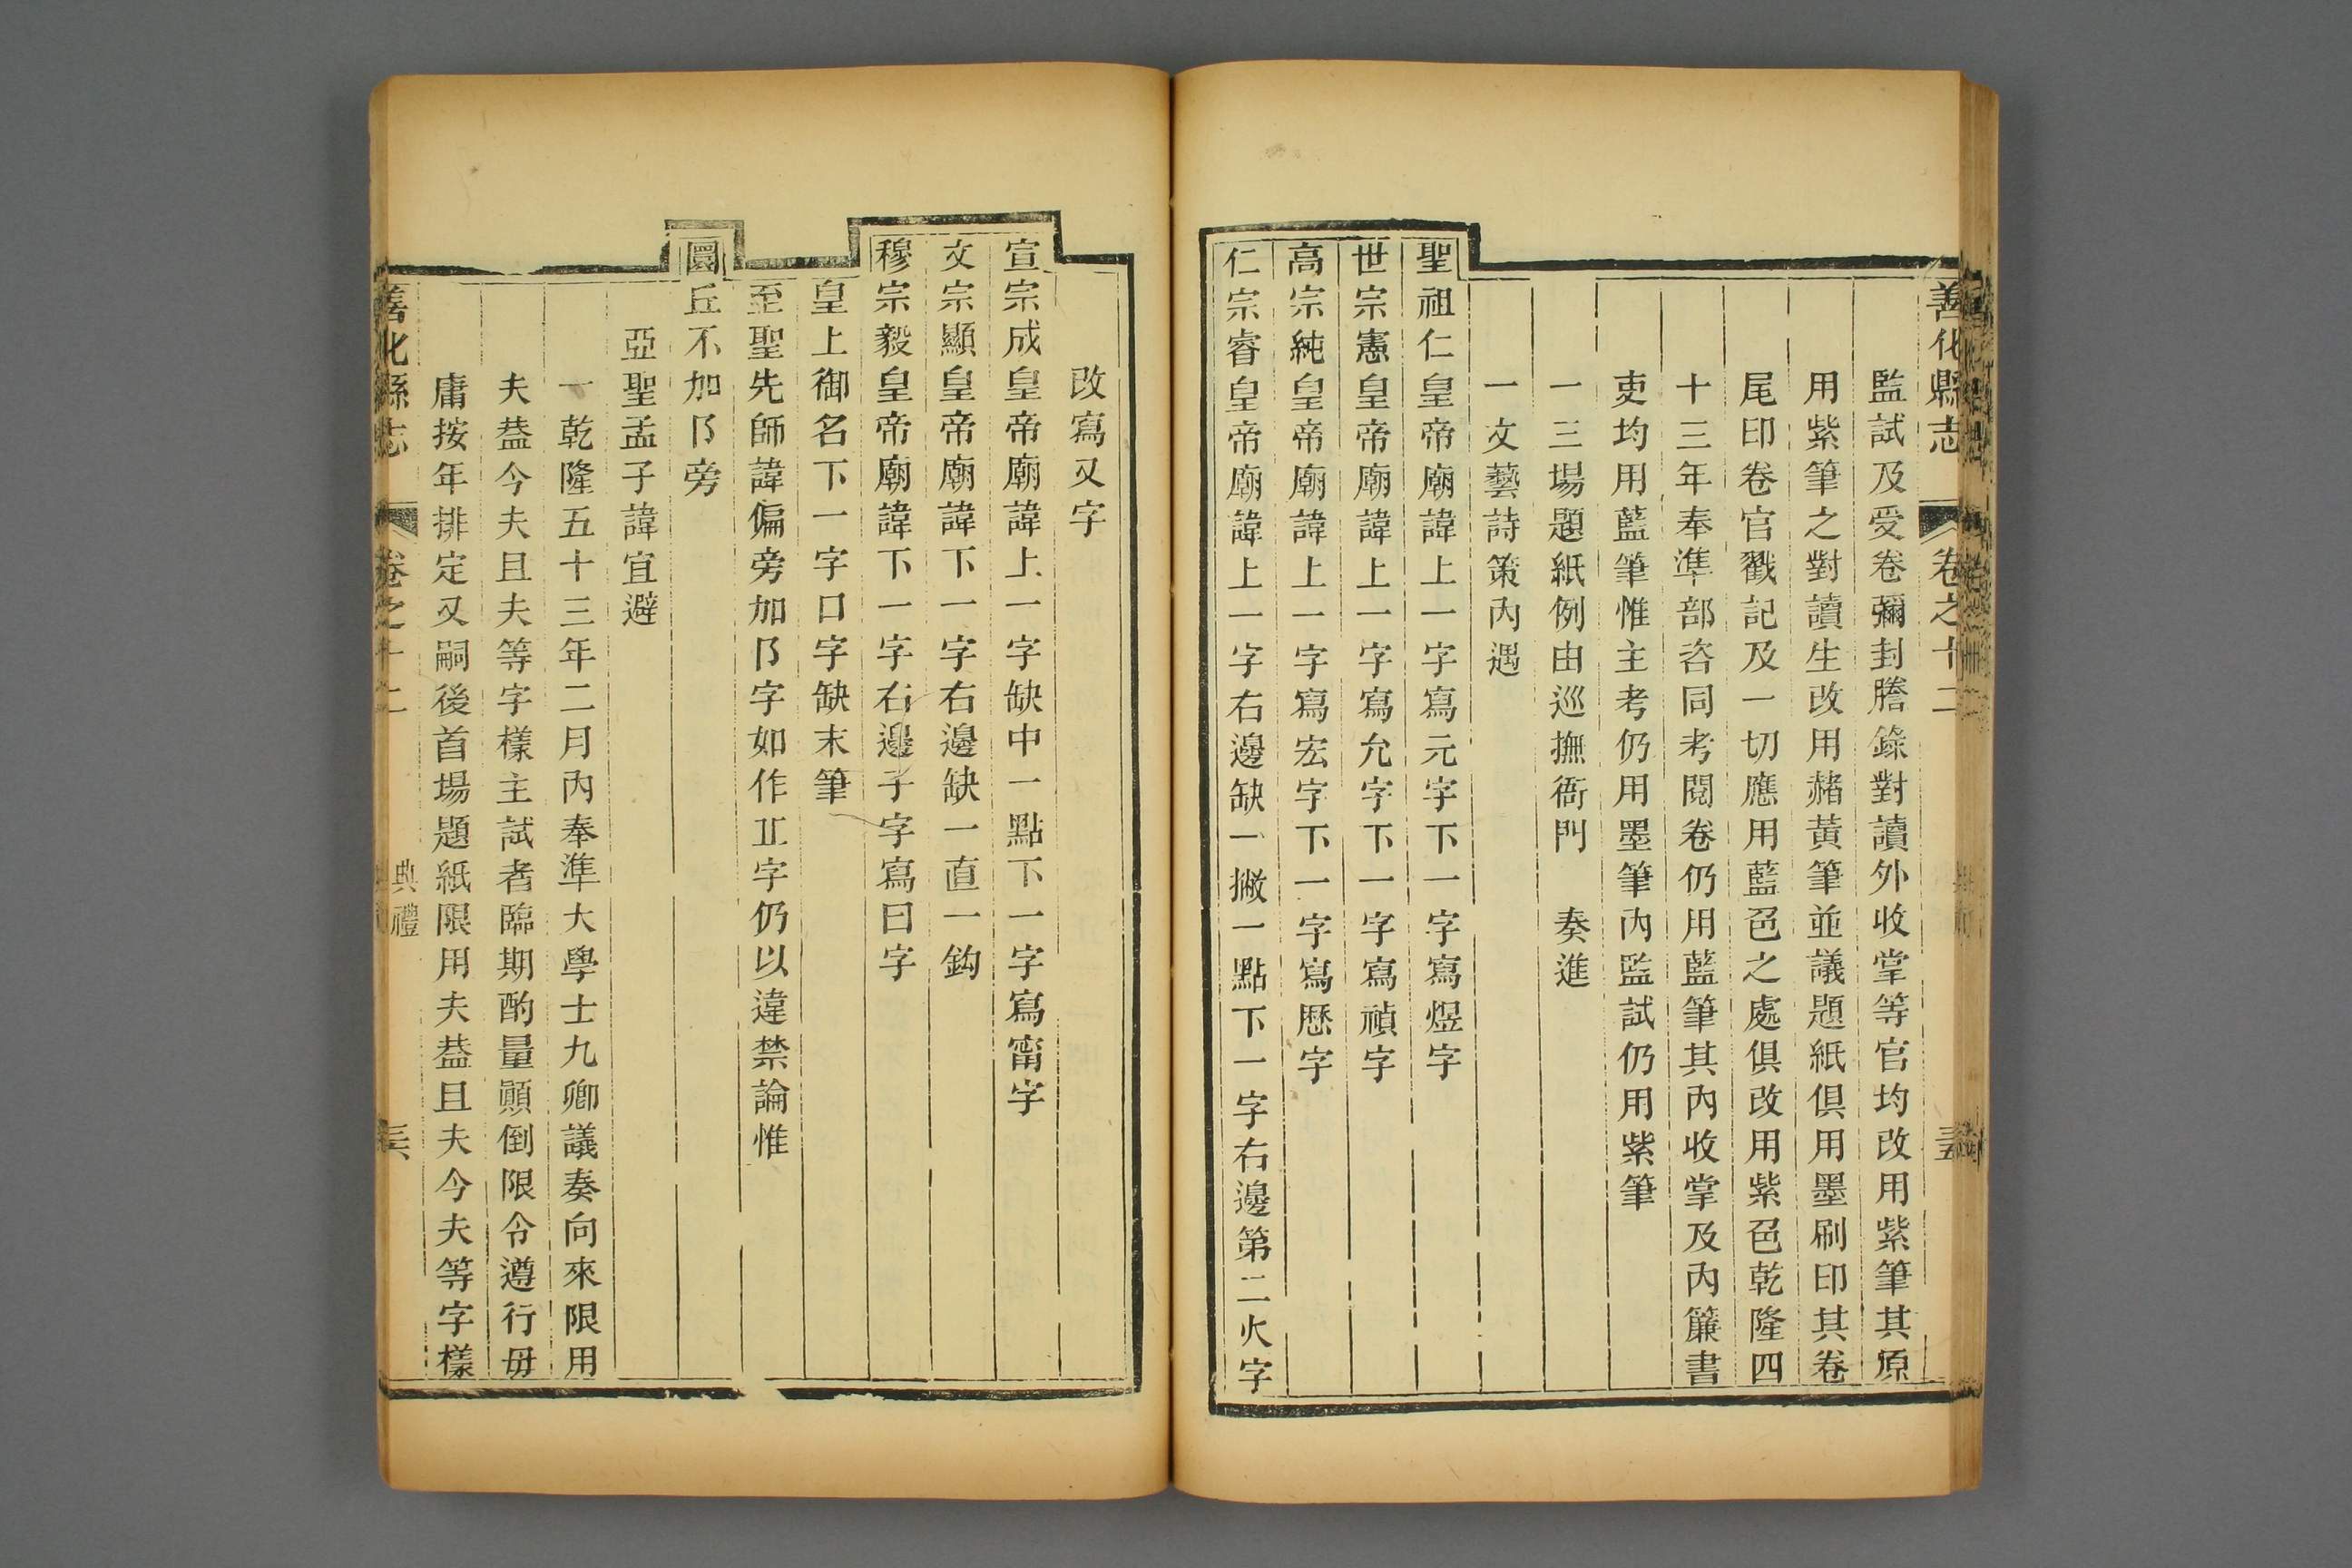 善化縣志 卷之十二 三五
監試及受卷彌封謄錄對讀外收掌等官均改用紫筆其原
用紫筆之對讀生改用赭黃筆並議題紙俱用墨刷印其卷
尾印卷官戳記及一切應用藍色之處俱改用紫色乾隆四
十三年奉準部咨同考閱卷仍用藍筆其內收掌及內簾書
吏均用藍筆惟主考仍用墨筆內監試仍用紫筆
一三場題紙例由巡撫衙門 奏進
一文藝詩策內遇
聖祖仁皇帝廟諱上一字寫元字下一字寫煜字
世宗憲皇帝廟諱上一字寫允字下一字寫禎字
高宗純皇帝廟諱上一字寫宏字下一字寫歷字
仁宗睿皇帝廟諱上一字右邊缺一撇一點下一字右邊第二火字
改寫又字
宣宗成皇帝廟諱上一字缺中一點下一字寫甯字
文宗顯皇帝廟諱下一字右邊缺一直一鈎
穆宗毅皇帝廟諱下一字右邊子字寫曰字
皇上御名下一字口字缺末筆
至聖先師諱偏旁加阝字如作丠字仍以違禁論惟
圜丘不加阝旁
亞聖孟子諱宜避
一乾隆五十三年二月內奉準大學士九卿議奏向來限用
夫葢今夫且夫等字樣主試者臨期酌量顚倒限令遵行毋
庸按年排定又嗣後首場題紙限用夫葢且夫今夫等字樣
善化縣志 卷之十二 典禮 三六